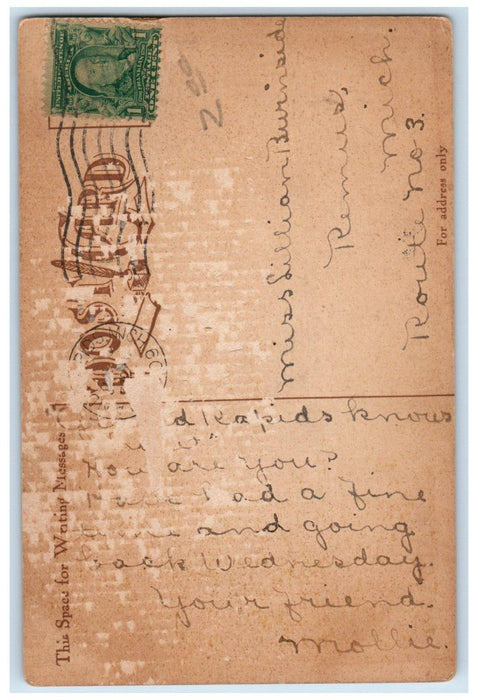 POST CARD
This Space for Writing Messages
For address only
ONE CENT
1
2 00
Miss Lillian Burnside
Remus,
Mich.
Route no 3.
d Rapids knows
you are you?
had a fine
time and going
back Wednesday.
Your friend.
Mollie.